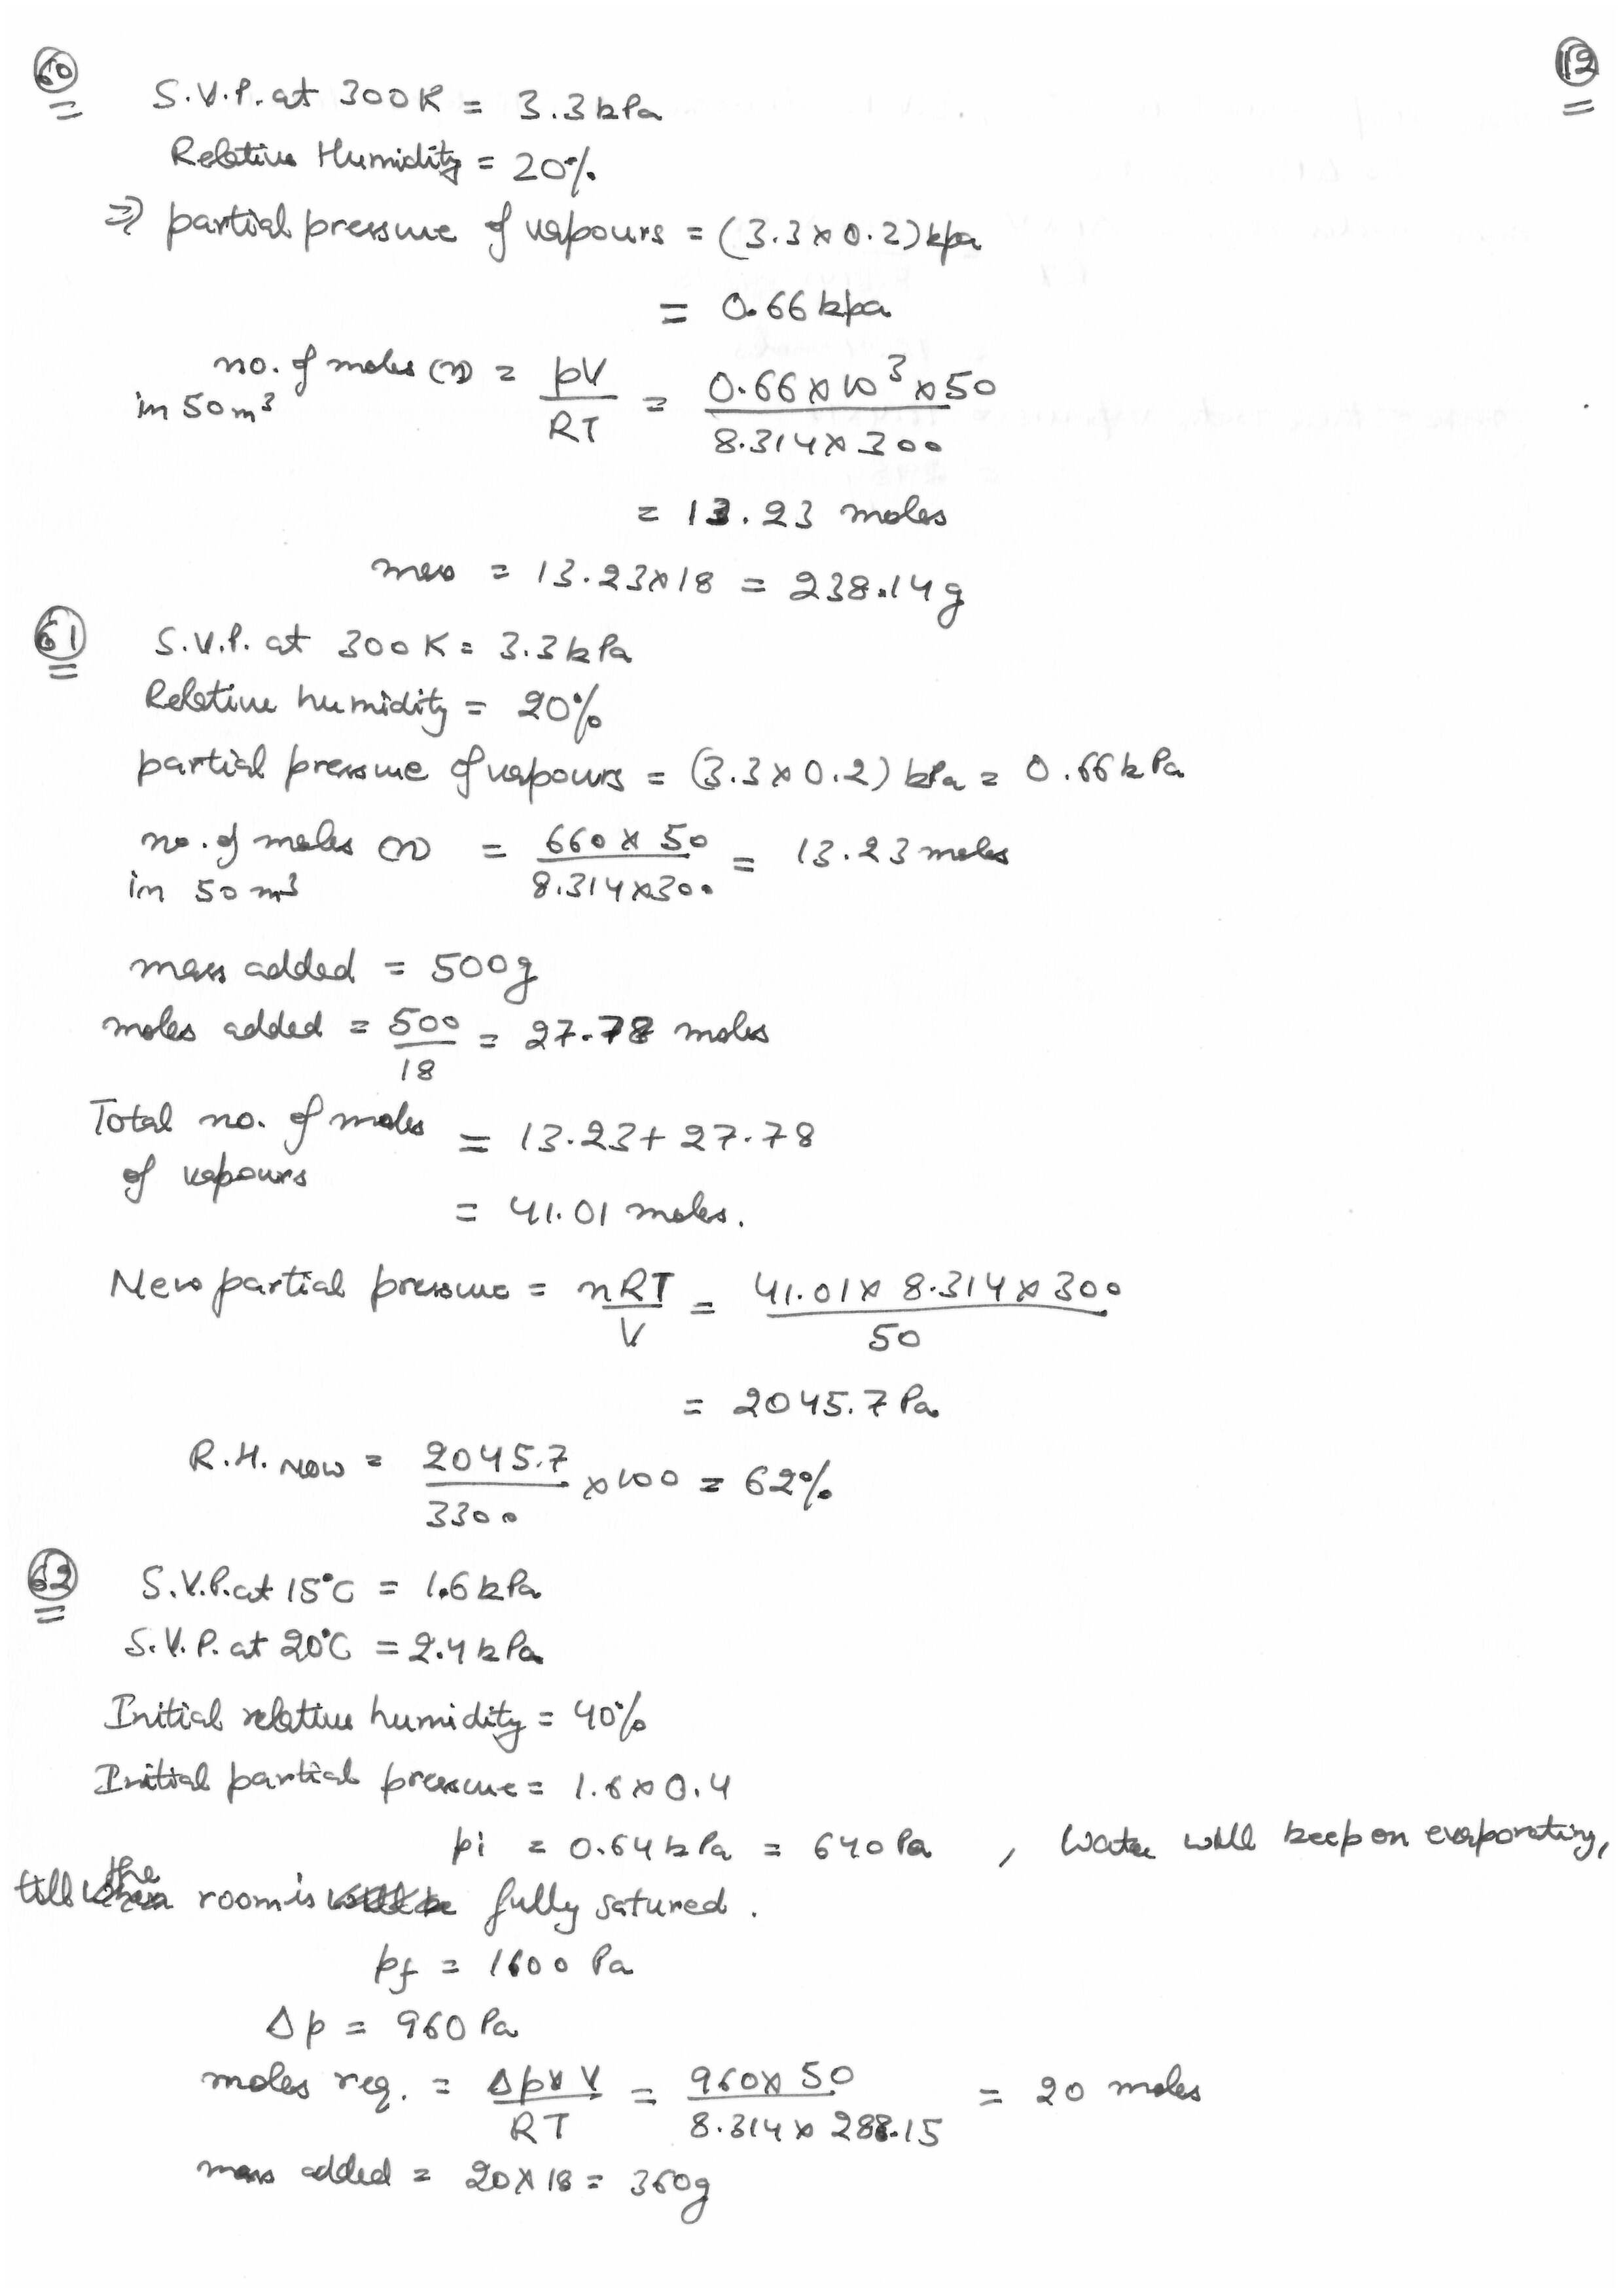 60 12
S.V.P. at 300K = 3.3 kPa
Relative Humidity = 20%
⇒ partial pressure of vapours = (3.3 × 0.2) kpa
= 0.66 kpa
no. of moles (n) = pV / RT = 0.66 × 10³ × 50 / 8.314 × 300
in 50 m³
= 13.23 moles
mass = 13.23 × 18 = 238.14 g
61 S.V.P. at 300 K = 3.3 kPa
Relative humidity = 20%
partial pressure of vapours = (3.3 × 0.2) kPa = 0.66 kPa
no. of moles (n) = 660 × 50 / 8.314 × 300 = 13.23 moles
in 50 m³
mass added = 500 g
moles added = 500 / 18 = 27.78 moles
Total no. of moles = 13.23 + 27.78
of vapours
= 41.01 moles.
New partial pressure = nRT / V = 41.01 × 8.314 × 300 / 50
= 2045.7 Pa
R.H. now = 2045.7 / 3300 × 100 = 62%
62 S.V.P. at 15°C = 1.6 kPa
S.V.P. at 20°C = 2.4 kPa
Initial relative humidity = 40%
Initial partial pressure = 1.6 × 0.4
pi = 0.64 kPa = 640 Pa , Water will keep on evaporating,
till the room is fully satured.
pf = 1600 Pa
Δp = 960 Pa
moles req. = Δp × V / RT = 960 × 50 / 8.314 × 288.15 = 20 moles
mass added = 20 × 18 = 360 g